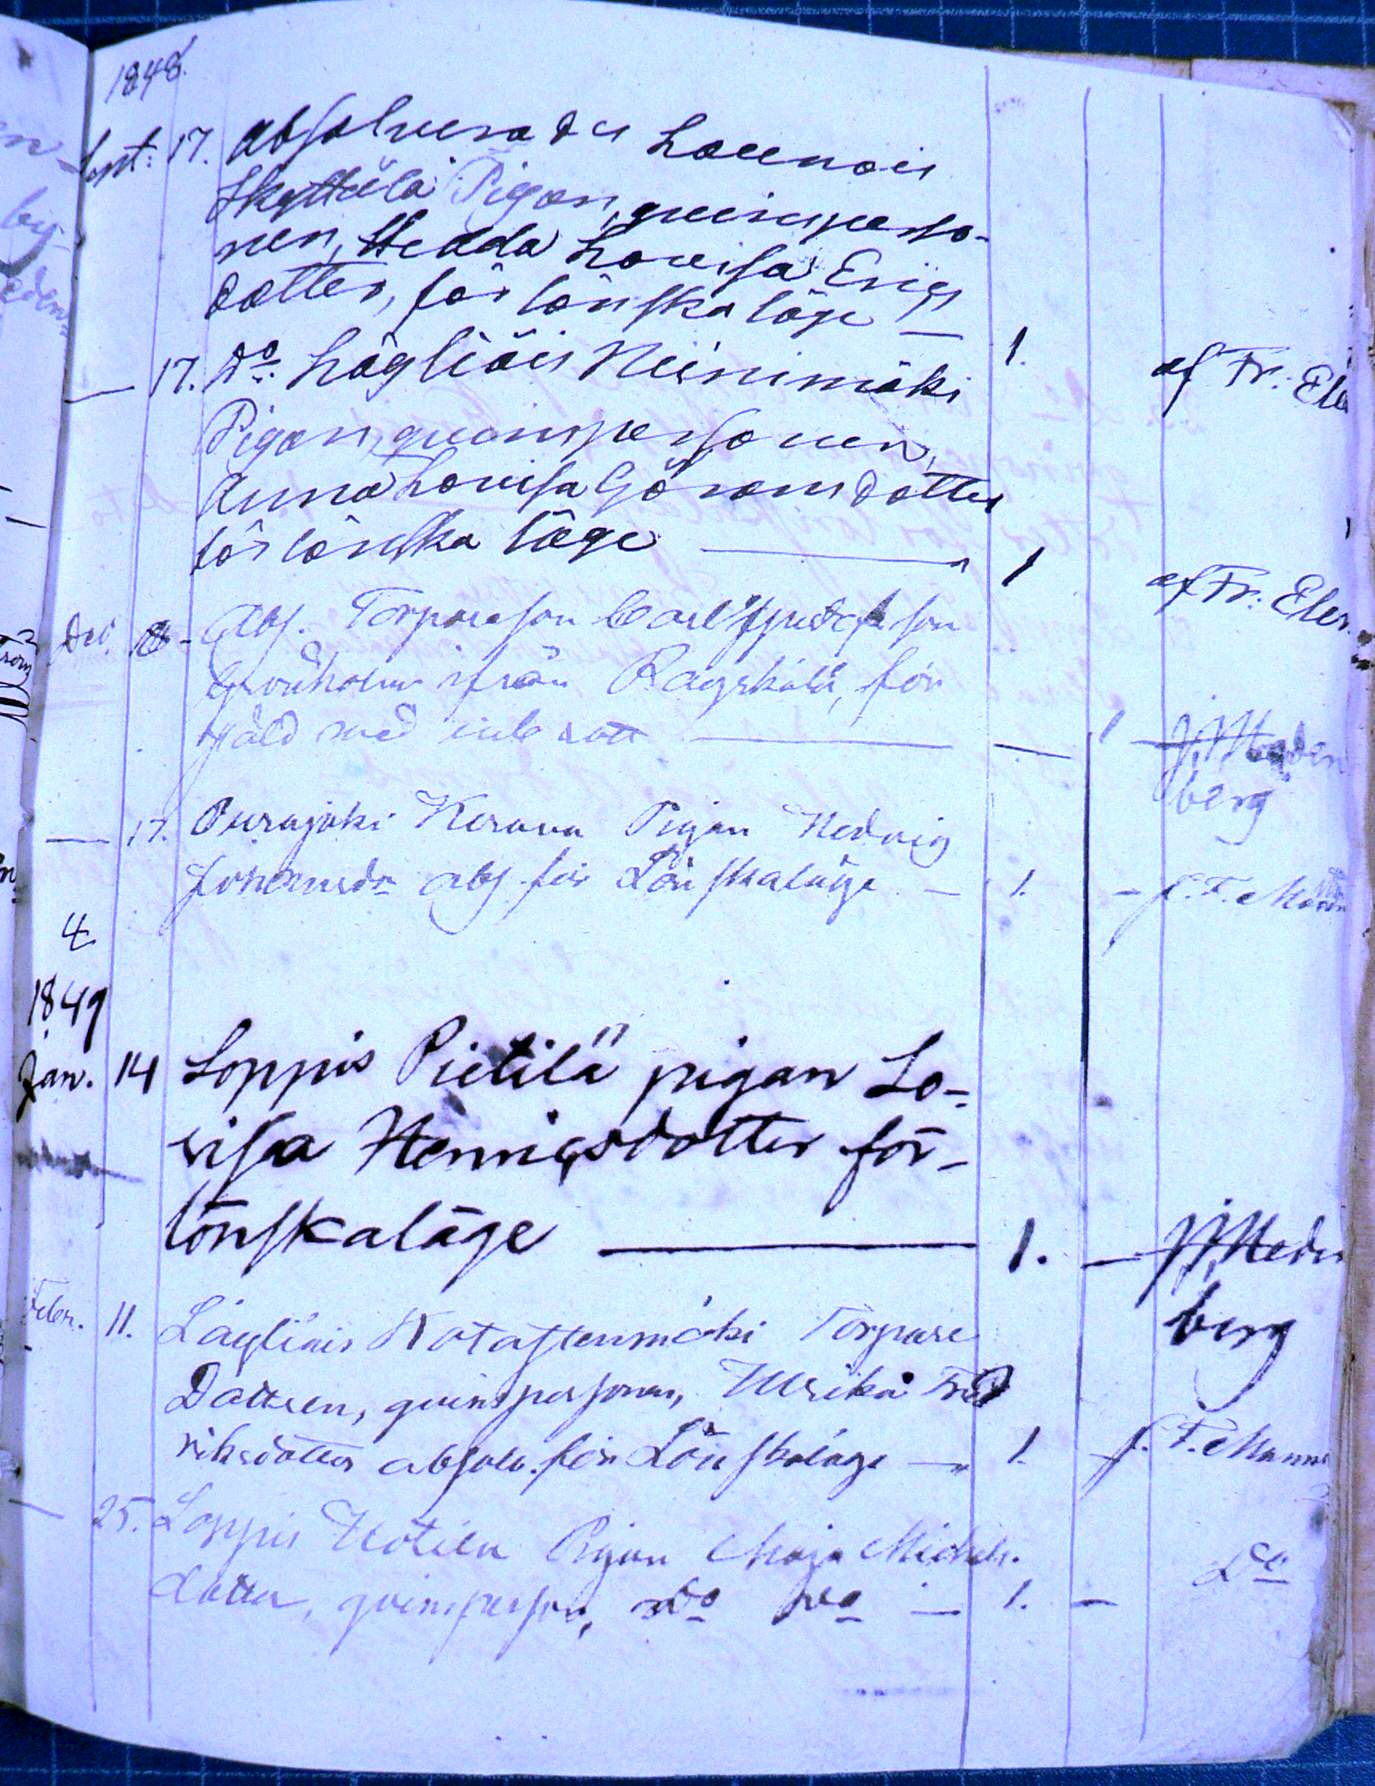 1848.
Sept: 17. absolverades Launois
Skyttälä Pigan, qvinsperso-
nen, Hedda Lovisa Erics
dotter, för lönskaläge — 1. af Fr: Ele
— 17. Do: Lägliöis Heinimäki
Pigan, qvinspersonen,
Anna Lovisa Göransdotter
för lönska läge — 1 af Fr: Eler
Dec. abs. Torpareson Carl son
Grönholm ifrån Räyskälä, för
med inbrott — — 1 J. Meden
berg
— 17. Purajoki Kerava Pigan Hedvig
Johansdr abs. för Lönskaläge — 1. — F. Mann
1849
Jan. 14 Loppis Pietilä pigan Lo-
visa Henricsdotter för-
lönskaläge — 1. — J. Meden
berg
Febr. 11. Lägliöis Torpare
Dottren, qvinspersonen, Ulrika Fred
riksdotter absolv. för Lönskaläge — 1. F. Mann
— 25. Loppis Pigan Maja Michels-
dotter, qvinsperson, do do — 1. — Do